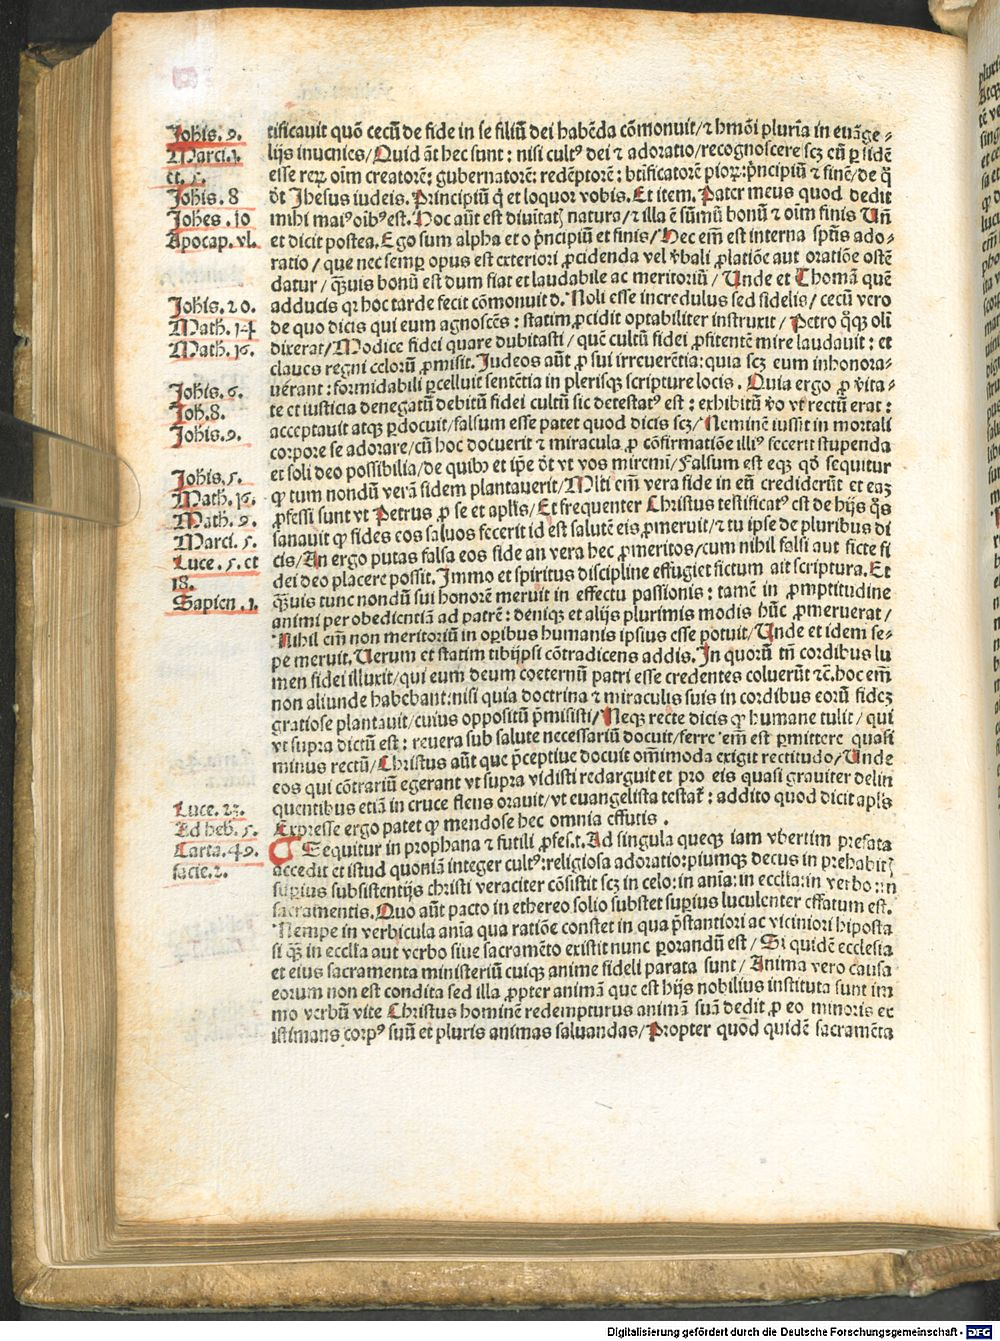 Johis. 9.
Marci. 3.
et. 5.
Johis. 8
Johes. 10
Apocap. vl.
Johis. 20.
Math. 14
Math. 16.
Johis. 6.
Joh. 8.
Johis. 9.
Johis. 5.
Math. 16.
Math. 9.
Marci. 5.
Luce. 5. et
18.
Sapien. 1.
Luce. 23.
Ad heb. 5.
Carta. 49.
facie. 2.
tificauit quō cecū de fide in se filiū dei habēda cōmonuit/ ⁊ hmōi plurīa in euāge⸗
lijs inuenies/ Quid āt hec sunt: nisi cultꝰ dei ⁊ adoratio/ recognoscere scꝫ eū ꝑ fidē
esse reꝝ oīm creatorē: gubernatorē: redēptorē: btificatorē pioꝝ: pͥncipiū ⁊ finē/ de q̄
dt Jhesus iudeis. Principiū qͥ et loquor vobis. Et item. Pater meus quod dedit
mihi maiꝰ oibꝰ est. Hoc aūt est diuitatꝭ natura/ ⁊ illa ē sūmū bonū ⁊ oīm finis Uñ
et dicit postea. Ego sum alpha et o pͥncipiū et finis/ Hec em̄ est interna spūs ado⸗
ratio/ que nec semꝑ opus est exteriori ꝓcidenda vel v̄bali ꝓlatiōe aut oratiōe ostē
datur/ qͣꝫuis bonū est dum fiat et laudabile ac meritoriū/ Unde et Thomā quē
adducis qꝛ hoc tarde fecit cōmonuit d. Noli esse incredulus sed fidelis/ cecū vero
de quo dicis qui eum agnoscēs: statim ꝓcidit optabiliter instruxit/ Petro qͦꝫ oli
dixerat/ Modice fidei quare dubitasti/ quē cultū fidei ꝓfitentē mire laudauit: et
claues regni celorū ꝓmisit. Judeos aūt ꝓ sui irreuerētia: quia scꝫ eum inhonora⸗
uērant: formidabili ꝑcelluit sentētia in plerisqꝫ scripture locis. Quia ergo ꝓ v̄ita⸗
te et iusticia denegatū debitū fidei cultū sic detestatꝰ est: exhibitū v̄o vt rectū erat:
acceptauit atqꝫ ꝑdocuit/ falsum esse patet quod dicis scꝫ/ Neminē iussit in mortali
corpore se adorare/ cū hoc docuerit ⁊ miracula ꝓ cōfirmatiōe illiꝰ fecerit stupenda
et soli deo possibilia/ de quibꝰ et ip̄e dt vt vos miremī/ Falsum est eqꝫ qd̄ sequitur
ꝙ tum nondū verā fidem plantauerit/ Mlti em̄ vera fide in eū crediderūt et eaꝫ
ꝓfessi sunt vt Petrus ꝓ se et apl̄is/ Et frequenter Christus testificatꝰ est de hijs qͦs
sanauit ꝙ fides eos saluos fecerit id est salutē eis ꝓmeruit/ ⁊ tu ipse de pluribus di
cis/ An ergo putas falsa eos fide an vera hec ꝓmeritos/ cum nihil falsi aut ficte fi
dei deo placere possit. Immo et spiritus discipline effugiet fictum ait scriptura. Et
qͣꝫuis tunc nondū sui honorē meruit in effectu passionis: tamē in ꝓmptitudine
animi per obedientiā ad patrē: deniqꝫ et alijs plurimis modis hūc ꝓmeruerat/
Nihil em̄ non meritoriū in oꝑibus humanis ipsius esse potuit/ Unde et idem se⸗
pe meruit. Uerum et statim tibiipsi cōtradicens addis. In quorū tñ cordibus lu
men fidei illuxit/ qui eum deum coeternū patri esse credentes coluerūt ⁊c̄. hoc em̄
non aliunde habebant: nisi quia doctrina ⁊ miraculis suis in cordibus eorū fideꝫ
gratiose plantauit/ cuius oppositū p̄misisti/ Neqꝫ recte dicis ꝙ humane tulit/ qui
vt supra dictū est: reuera sub salute necessariū docuit/ ferre em̄ est ꝑmittere quasi
minus rectū/ Christus aūt que p̄ceptiue docuit om̄imoda exigit rectitudo/ Unde
eos qui cōtrariū egerant vt supra vidisti redarguit et pro eis quasi grauiter delin
quentibus etiā in cruce flens orauit/ vt euangelista testat̄: addito quod dicit apl̄s
Expresse ergo patet ꝙ mendose hec omnia effutis.
Sequitur in prophana ⁊ futili ꝓfes.t. Ad singula queqꝫ iam vbertim prefata
accedit et istud quoniā integer cultꝰ: religiosa adoratio: piumqꝫ decus in prehabitꝭ
suꝑius subsistentijs christi veraciter cōsistit scꝫ in celo: in anīa: in eccl̄ia: in verbo: in
sacramentis. Quo aūt pacto in ethereo solio substet suꝑius luculenter effatum est.
Nempe in verbicula anīa qua ratiōe constet in qua p̄stantiori ac viciniori hiposta
si qͣꝫ in eccl̄ia aut verbo siue sacramēto existit nunc ꝑorandū est/ Si quidē ecclesia
et eius sacramenta ministeriū cuiqꝫ anime fideli parata sunt/ Anima vero causa
eorum non est condita sed illa ꝓpter animā que est hijs nobilius instituta sunt im
mo verbū vite Christus hominē redempturus animā suā dedit ꝓ eo minoris ex
istimans corpꝰ suū et pluris animas saluandas/ Propter quod quidē sacramēta
Digitalisierung gefördert durch die Deutsche Forschungsgemeinschaft - DFG